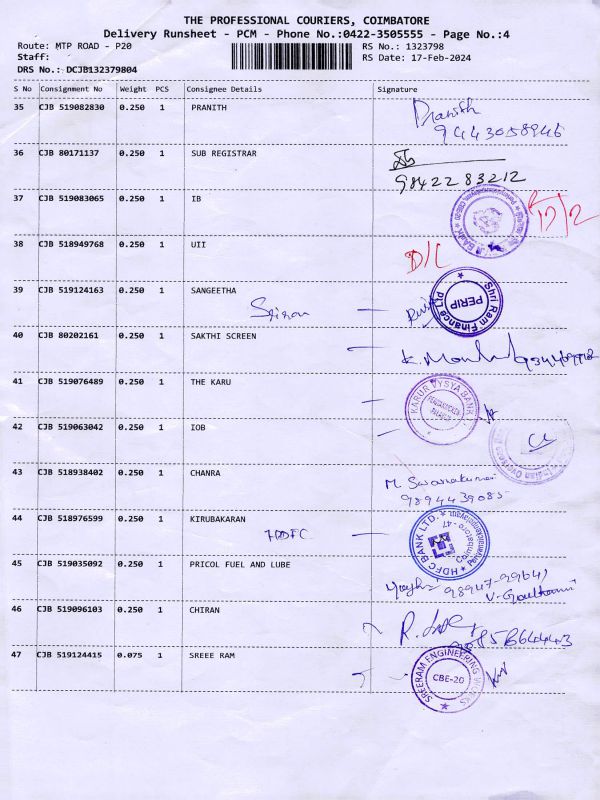 THE PROFESSIONAL COURIERS, COIMBATORE
Delivery Runsheet - PCM - Phone No.:0422-3505555 - Page No.:4
Route: MTP ROAD - P20 RS No.: 1323798
Staff: RS Date: 17-Feb-2024
DRS No.: DCJB132379804
S No Consignment No Weight PCS Consignee Details Signature
35 CJB 519082830 0.250 1 PRANITH Pranith
9443058946
36 CJB 80171137 0.250 1 SUB REGISTRAR
9842283212
37 CJB 519083065 0.250 1 IB
38 CJB 518949768 0.250 1 UII D/L
39 CJB 519124163 0.250 1 SANGEETHA Shri Ram Finance Ltd PERIP
40 CJB 80202161 0.250 1 SAKTHI SCREEN
41 CJB 519076489 0.250 1 THE KARU KARUR VYSYA BANK
42 CJB 519063042 0.250 1 IOB
43 CJB 518938402 0.250 1 CHANRA
9894439085
44 CJB 518976599 0.250 1 KIRUBAKARAN HDFC BANK LTD. Coimbatore - 47
HDFC
45 CJB 519035092 0.250 1 PRICOL FUEL AND LUBE
46 CJB 519096103 0.250 1 CHIRAN
47 CJB 519124415 0.075 1 SREEE RAM SREERAM ENGINEERING WORKS CBE-20